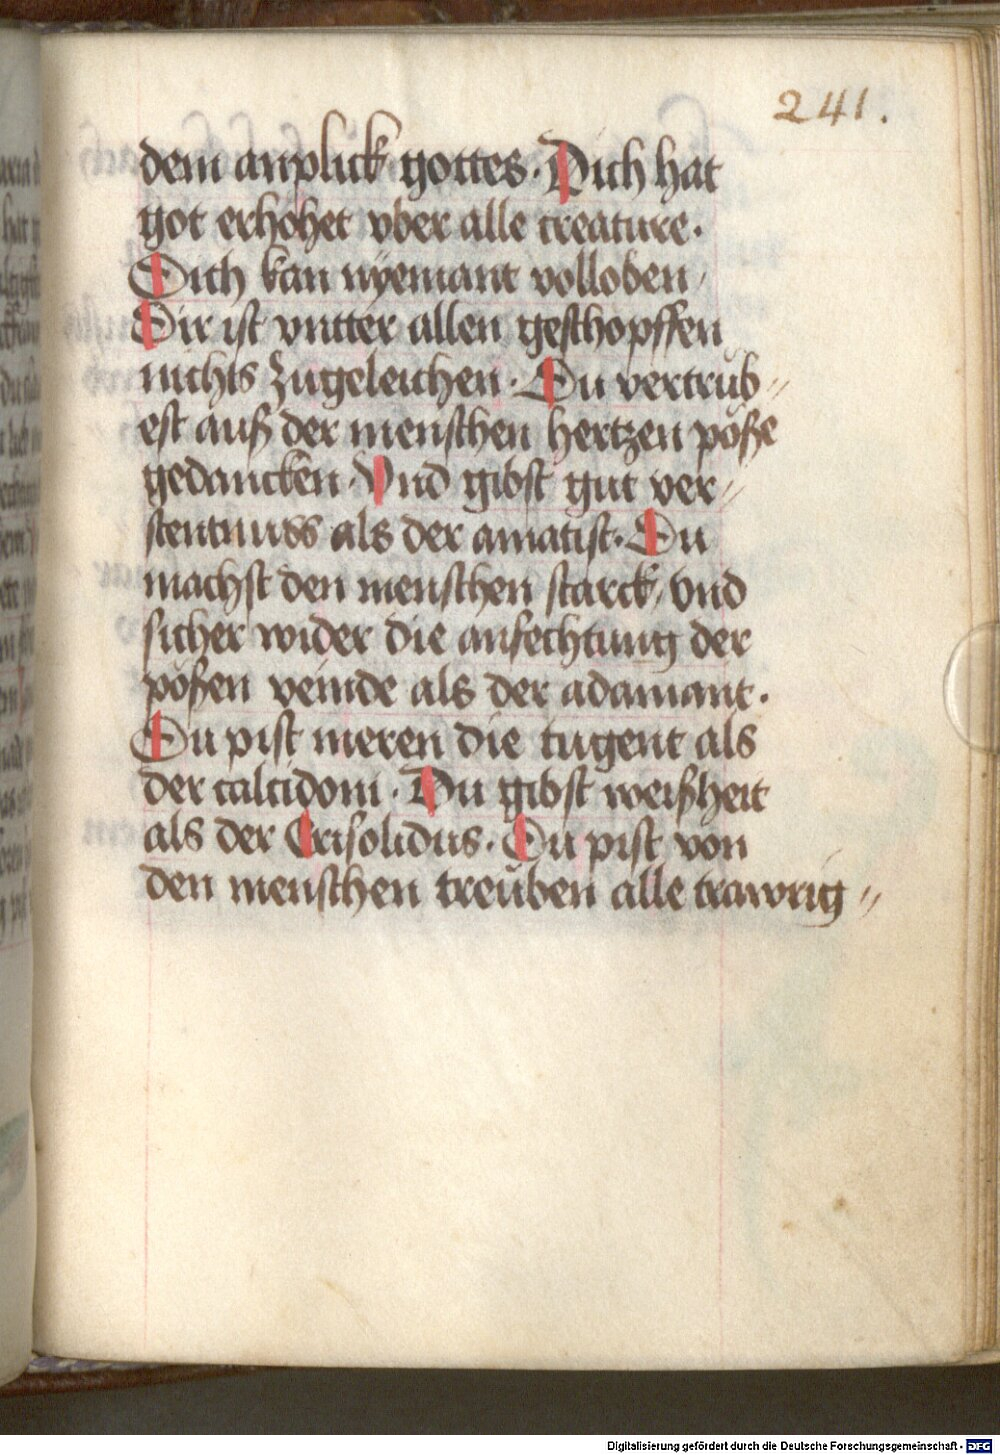 241.
dem anplick gottes. Dich hat
got erhöhet vber alle creature.
Dich kan nyemant volloben /
Dir ist vnter allen geschopffen
nichts zugeleichen. Du vertrüb //
est auß der menschen hertzen pöße
gedancken. Vnd gibst gut ver //
stentnuss als der amatist. Du
machst den menschen starck / vnd
sicher wider die anfechtung der
pößen veinde als der adamant.
Du pist meren die tugent als
der calcidoni. Du gibst weißheit
als der Crisolidus. Du pist von
den menschen treüben alle trawrig //
Digitalisierung gefördert durch die Deutsche Forschungsgemeinschaft - DFG